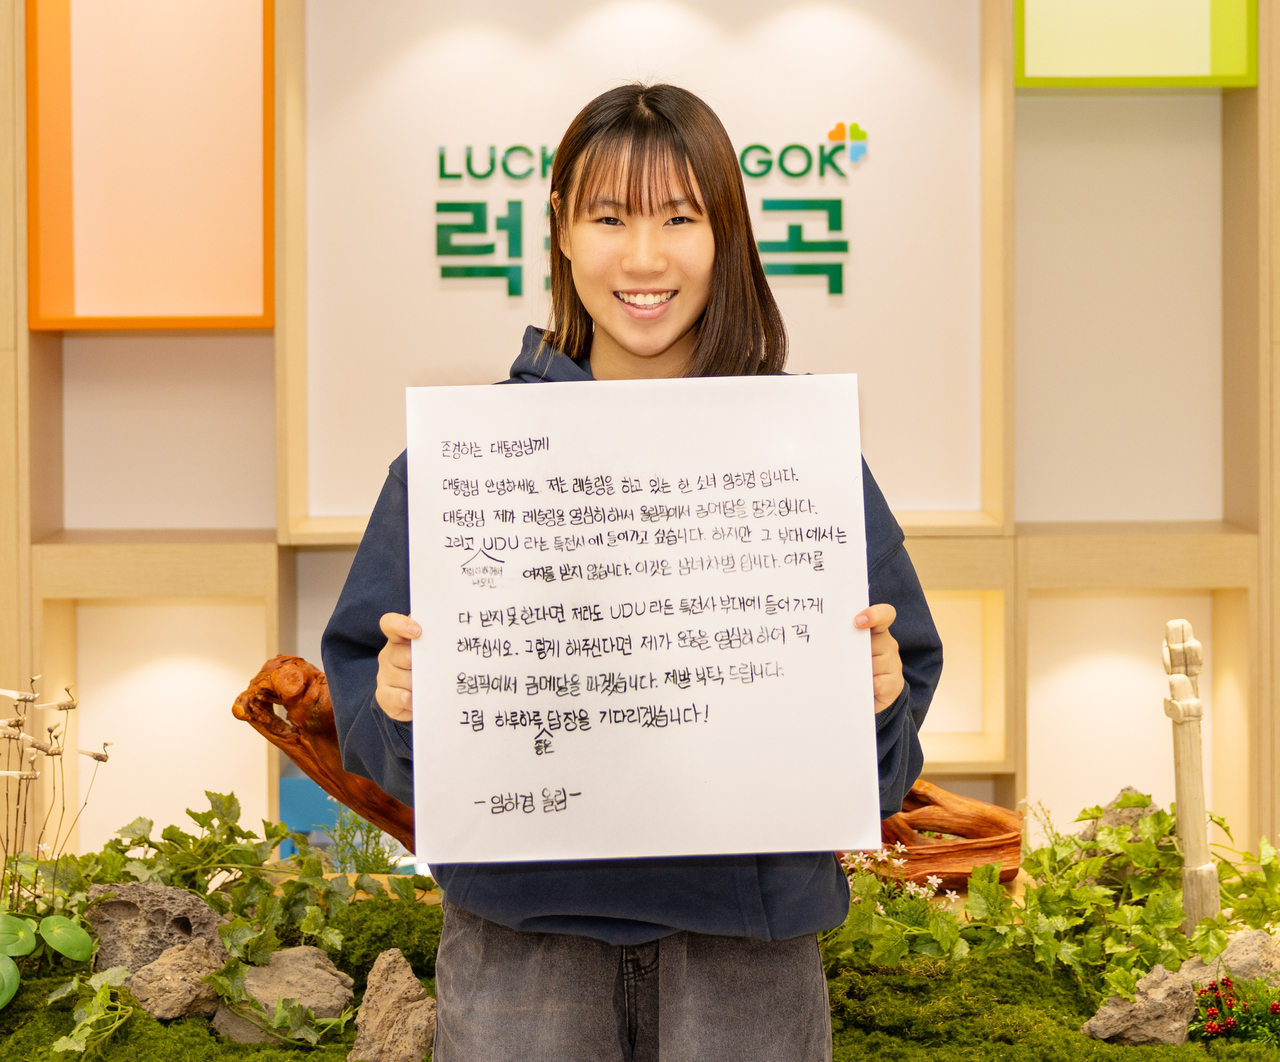 LUCK GOK
럭 곡
존경하는 대통령님께
대통령님 안녕하세요. 저는 레슬링을 하고 있는 한 소녀 임하경 입니다.
대통령님 제가 레슬링을 열심히 해서 올림픽에서 금메달을 딸것입니다.
그리고 UDU 라는 특전사에 들어가고 싶습니다. 하지만 그 부대에서는
나오진
여자를 받지 않습니다. 이것은 남녀차별 입니다. 여자를
다 받지 못한다면 저라도 UDU 라는 특전사 부대에 들어가게
해주십시오. 그렇게 해주신다면 제가 운동을 열심히 하여 꼭
올림픽에서 금메달을 따겠습니다. 제발 부탁 드립니다.
그럼 하루하루 답장을 기다리겠습니다!
좋은
-임하경 올림-